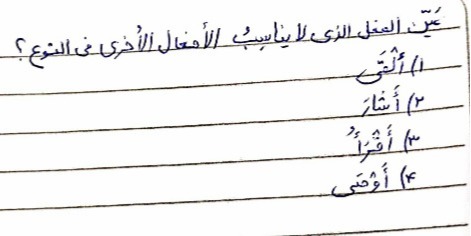 عَيّن الفعل الذی لا یناسِبُ الأفعال الأُخری فی النوع؟
۱) أَلْقَی
۲) أَشارَ
۳) أَقْرَأُ
۴) أَوْصَی